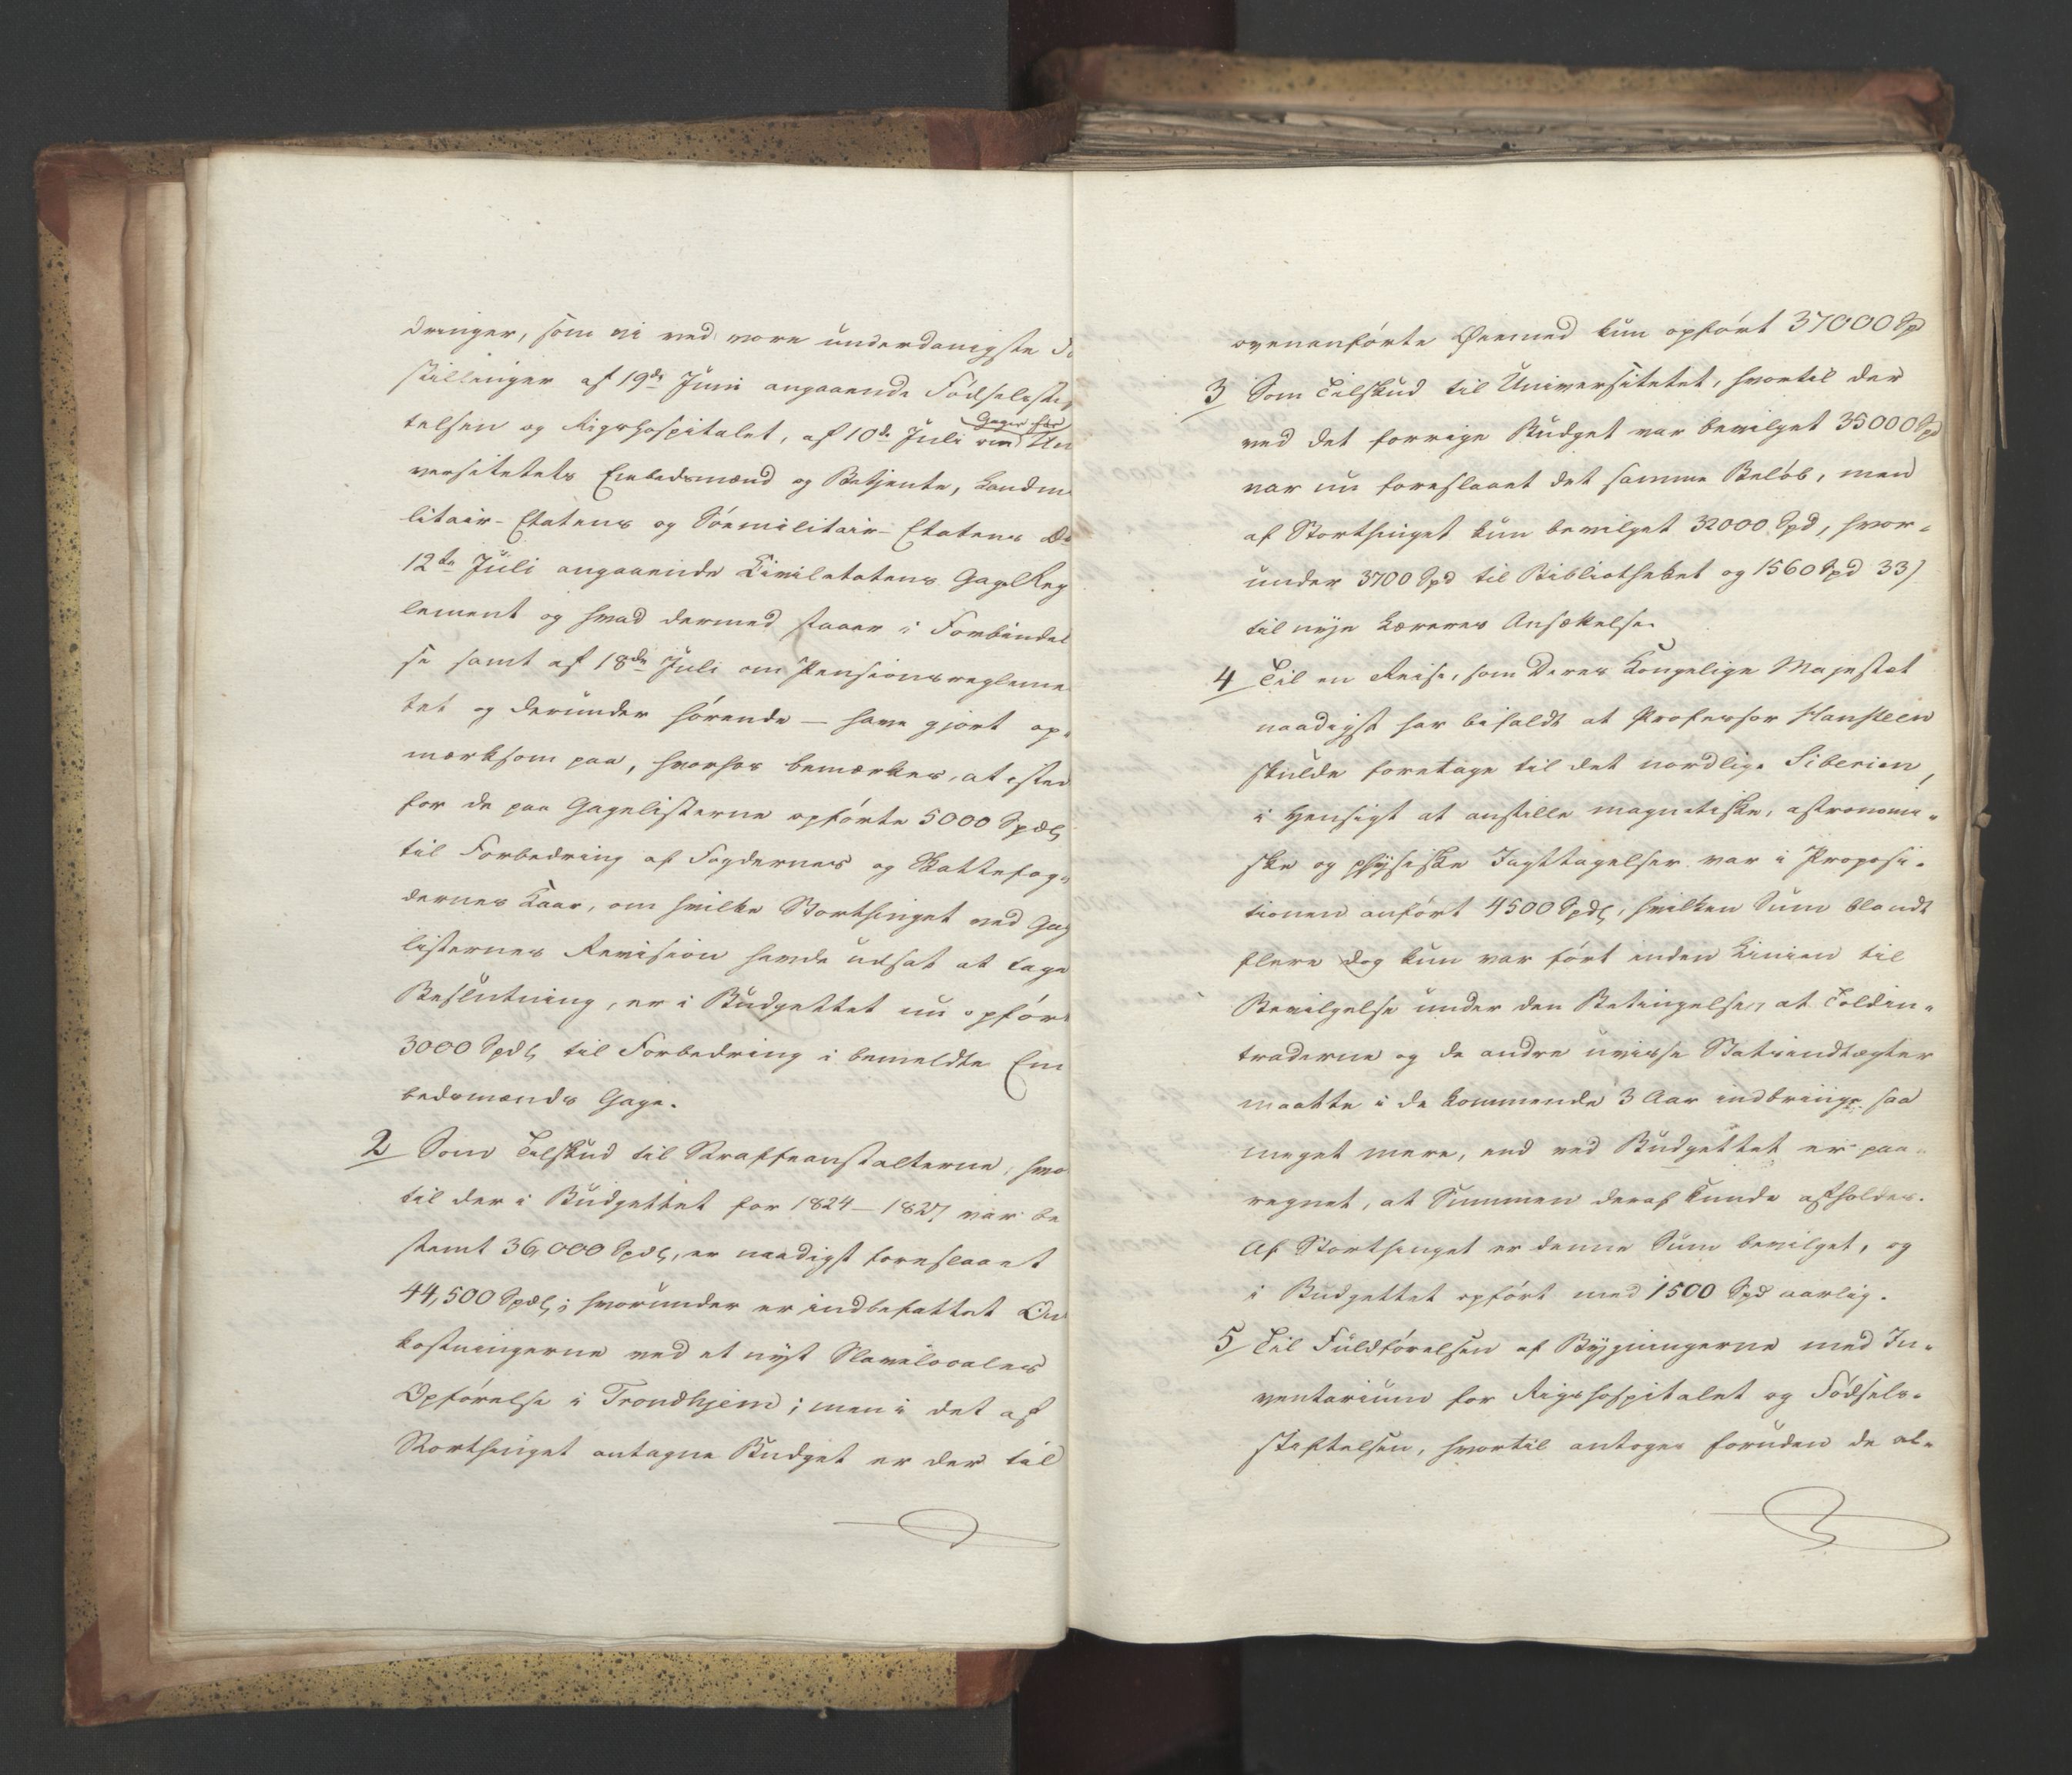 dringer, som vi ved vore underdanigste
stillinger af 19de Juni angaaende Fødselsstif
telsen og Rigshospitalet, af 10de Juli om Gager for Un
versitetets Embedsmænd og Betjente, Landmi
litair-Etatens og Søemilitair-Etatens
12te Juli angaaende Civiletatens GageReg
lement og hvad dermed staaer i Forbindel
se samt af 18de Juli om Pensionsregleme
tet og derunder hørende – have gjort op-
mærksom paa, hvorhos bemærkes, at isted
for de paa Gagelisterne opførte 5000 Spdlr
til Forbedring af Fogdernes og Skattefog-
dernes Kaar, om hvilke Storthinget ved Gag
listernes Revision havde udsat at tage
Beslutning, er i Budgettet nu opført
3000 Spdlr til Forbedring i bemeldte Em
bedsmænds Gage.
2 Som Tilskud til Straffeanstalterne, hvor
til der i Budgettet for 1824–1827 var be
stemt 36,000 Spdlr, er naadigst foreslaaet
44,500 Spdlr; hvorunder er indbefattet Om
kostningerne ved et nyt Slavelocales
Opførelse i Trondhjem; men i det af
Storthinget antagne Budget er der til
ovenanførte Øiemed kun opført 37000 Spd
3 Som Tilskud til Universitetet, hvortil der
ved det forrige Budget var bevilget 35000 Spd
var nu foreslaaet det samme Beløb, men
af Storthinget kun bevilget 32000 Spd, hvor-
under 3700 Spd til Bibliotheket og 1560 Spd 33)
til nye Læreres Ansættelse.
4 Til en Reise, som Deres Kongelige Majestæt
naadigst har bifaldt at Professor Hansteen
skulde foretage til det nordlige Siberien,
i Hensigt at anstille magnetiske, astronomi-
ske og physiske Iagttagelser var i Proposi-
tionen anført 4500 Spdlr, hvilken Sum blandt
flere dog kun var ført inden Linien til
Bevilgelse under den Betingelse, at Toldin-
traderne og de andre uvisse Statsindtægter
maatte i de kommende 3 Aar indbringe saa
meget mere, end ved Budgettet er paa-
regnet, at Summen deraf kunde afholdes.
Af Storthinget er denne Sum bevilget, og
i Budgettet opført med 1500 Spd aarlig.
5 Til Fuldførelsen af Bygningerne med In-
ventarium for Rigshospitalet og Fødsels-
stiftelsen, hvortil antoges foruden de al-